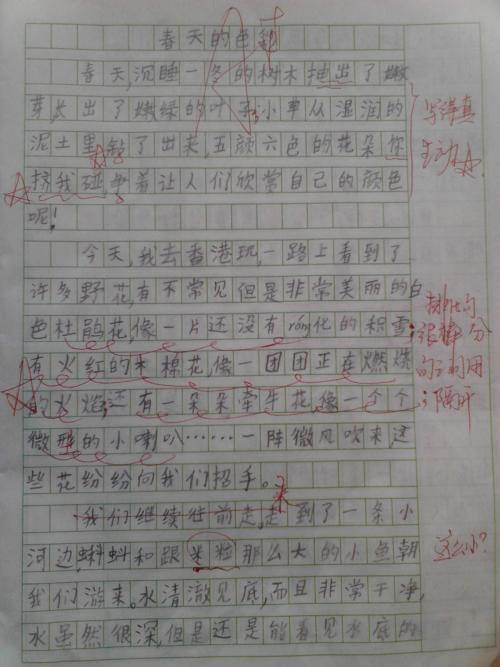 春天的色彩
春天,沉睡一冬的树木抽出了嫩
芽,长出了嫩绿的叶子;小草从湿润的
泥土里钻了出来,五颜六色的花朵你
挤我碰争着让人们欣赏自己的颜色
呢!
写得真
生动
今天,我去香港玩,一路上看到了
许多野花,有不常见但是非常美丽的白
色杜鹃花,像一片还没有róng化的积雪;
有火红的木棉花,像一团团正在燃烧
的火焰;还有一朵朵牵牛花,像一个个
微型的小喇叭……一阵微风吹来,这
些花纷纷向我们招手。
排比句
很棒 分
句之间用
;隔开
我们继续往前走,走到了一条小
来
河边,蝌蚪和跟米粒那么大的小鱼朝
我们游来。水清澈见底,而且非常干净,
水虽然很深,但是还是能看见水底的
这么小?